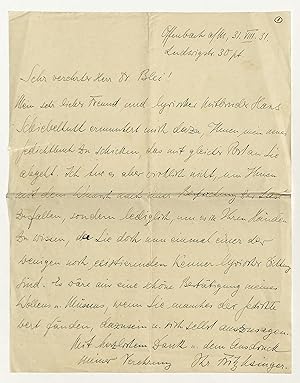 1
Offenbach a/M, 31. VIII. 31.
Ludwigstr. 30 pt.
Sehr verehrter Herr Dr. Blei!
Mein sehr lieber Freund und lyrischer Mitbruder Hans
Schiebelhuth ermuntert mich dazu, Ihnen mein neues
Gedichtbuch zu schicken, das mit gleicher Post an Sie
abgeht. Ich tue es aber wirklich nicht, um Ihnen
mit dem Wunsch nach einer Besprechung zur Last
zu fallen, sondern lediglich, um es in Ihren Händen
zu wissen, da Sie doch nun einmal einer der
wenigen noch existierenden Kenner lyrischer Bildung
sind. Es wäre mir eine schöne Bestätigung meines
Wollens u. Müssens, wenn Sie manches der Gedichte
wert fänden, dazusein u. sich selbst auszusagen.
Mit herzlichem Dank u. dem Ausdruck
meiner Verehrung Ihr Fritz Usinger.